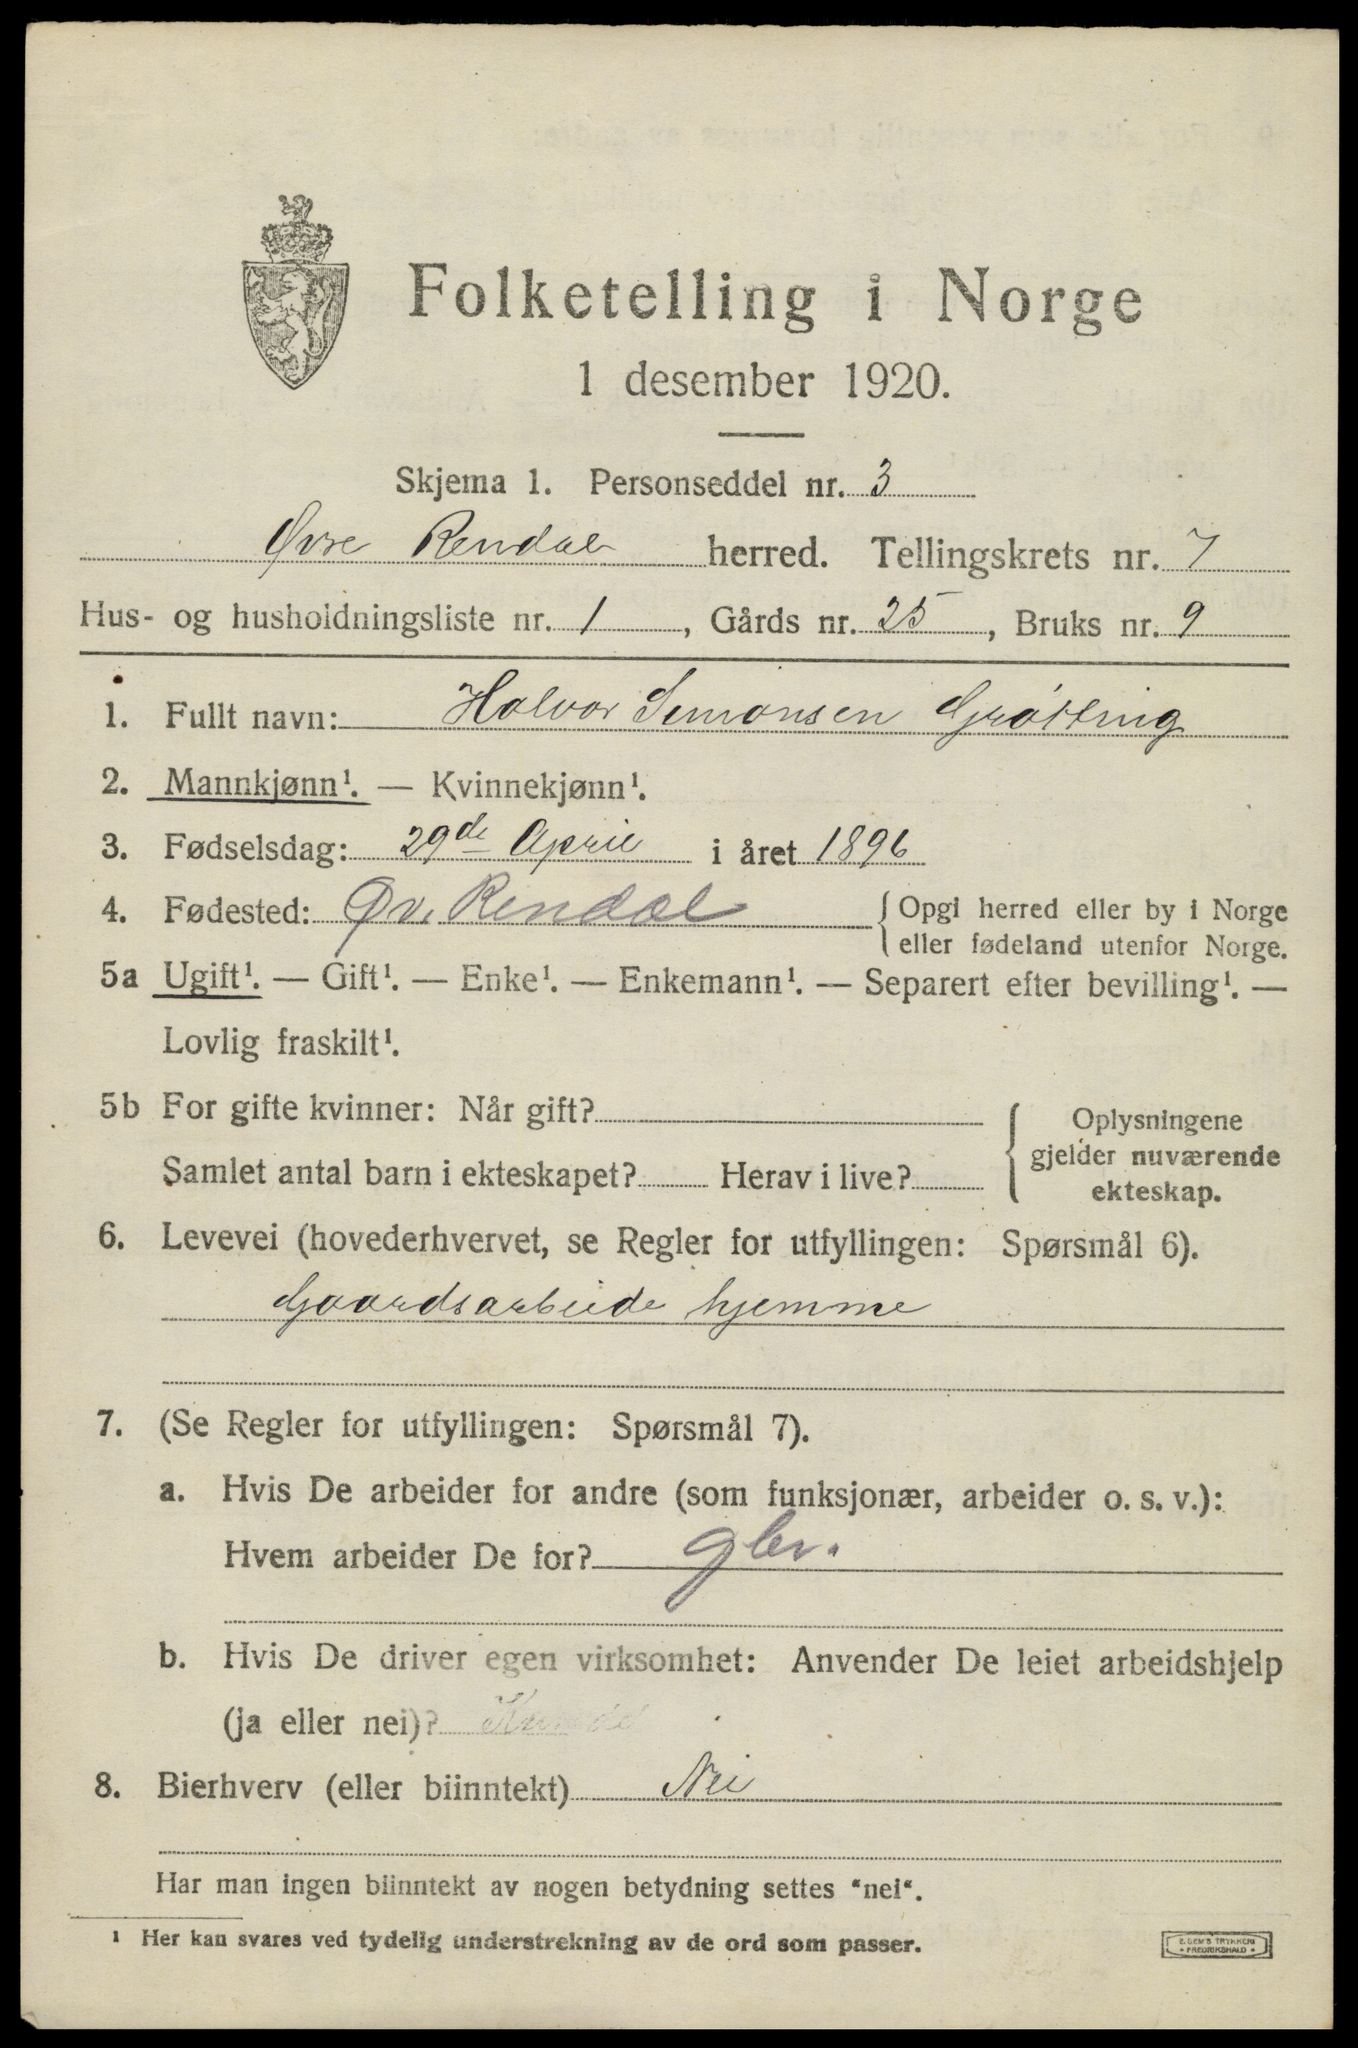 Folketelling i Norge
1 desember 1920.
Skjema 1. Personseddel nr. 3
Øvre Rendal herred. Tellingskrets nr. 7
Hus- og husholdningsliste nr. 1, Gårds nr. 25, Bruks nr. 9
1. Fullt navn: Halvor Simonsen Grøtting
2. Mannkjønn¹. — Kvinnekjønn¹.
3. Fødselsdag: 29de April i året 1896
4. Fødested: Øv. Rendal { Opgi herred eller by i Norge
eller fødeland utenfor Norge.
5a Ugift¹. — Gift¹. — Enke¹. — Enkemann¹. — Separert efter bevilling¹. —
Lovlig fraskilt¹.
5b For gifte kvinner: Når gift?
Samlet antal barn i ekteskapet? Herav i live?
{ Oplysningene
gjelder nuværende
ekteskap.
6. Levevei (hovederhvervet, se Regler for utfyllingen: Spørsmål 6).
Gaardsarbeide hjemme
7. (Se Regler for utfyllingen: Spørsmål 7).
a. Hvis De arbeider for andre (som funksjonær, arbeider o. s. v.):
Hvem arbeider De for? gbr.
b. Hvis De driver egen virksomhet: Anvender De leiet arbeidshjelp
(ja eller nei)?
8. Bierhverv (eller biinntekt) Nei
Har man ingen biinntekt av nogen betydning settes "nei".
¹ Her kan svares ved tydelig understrekning av de ord som passer.
E. SEM'S TRYKKERI
• FREDRIKSHALD •